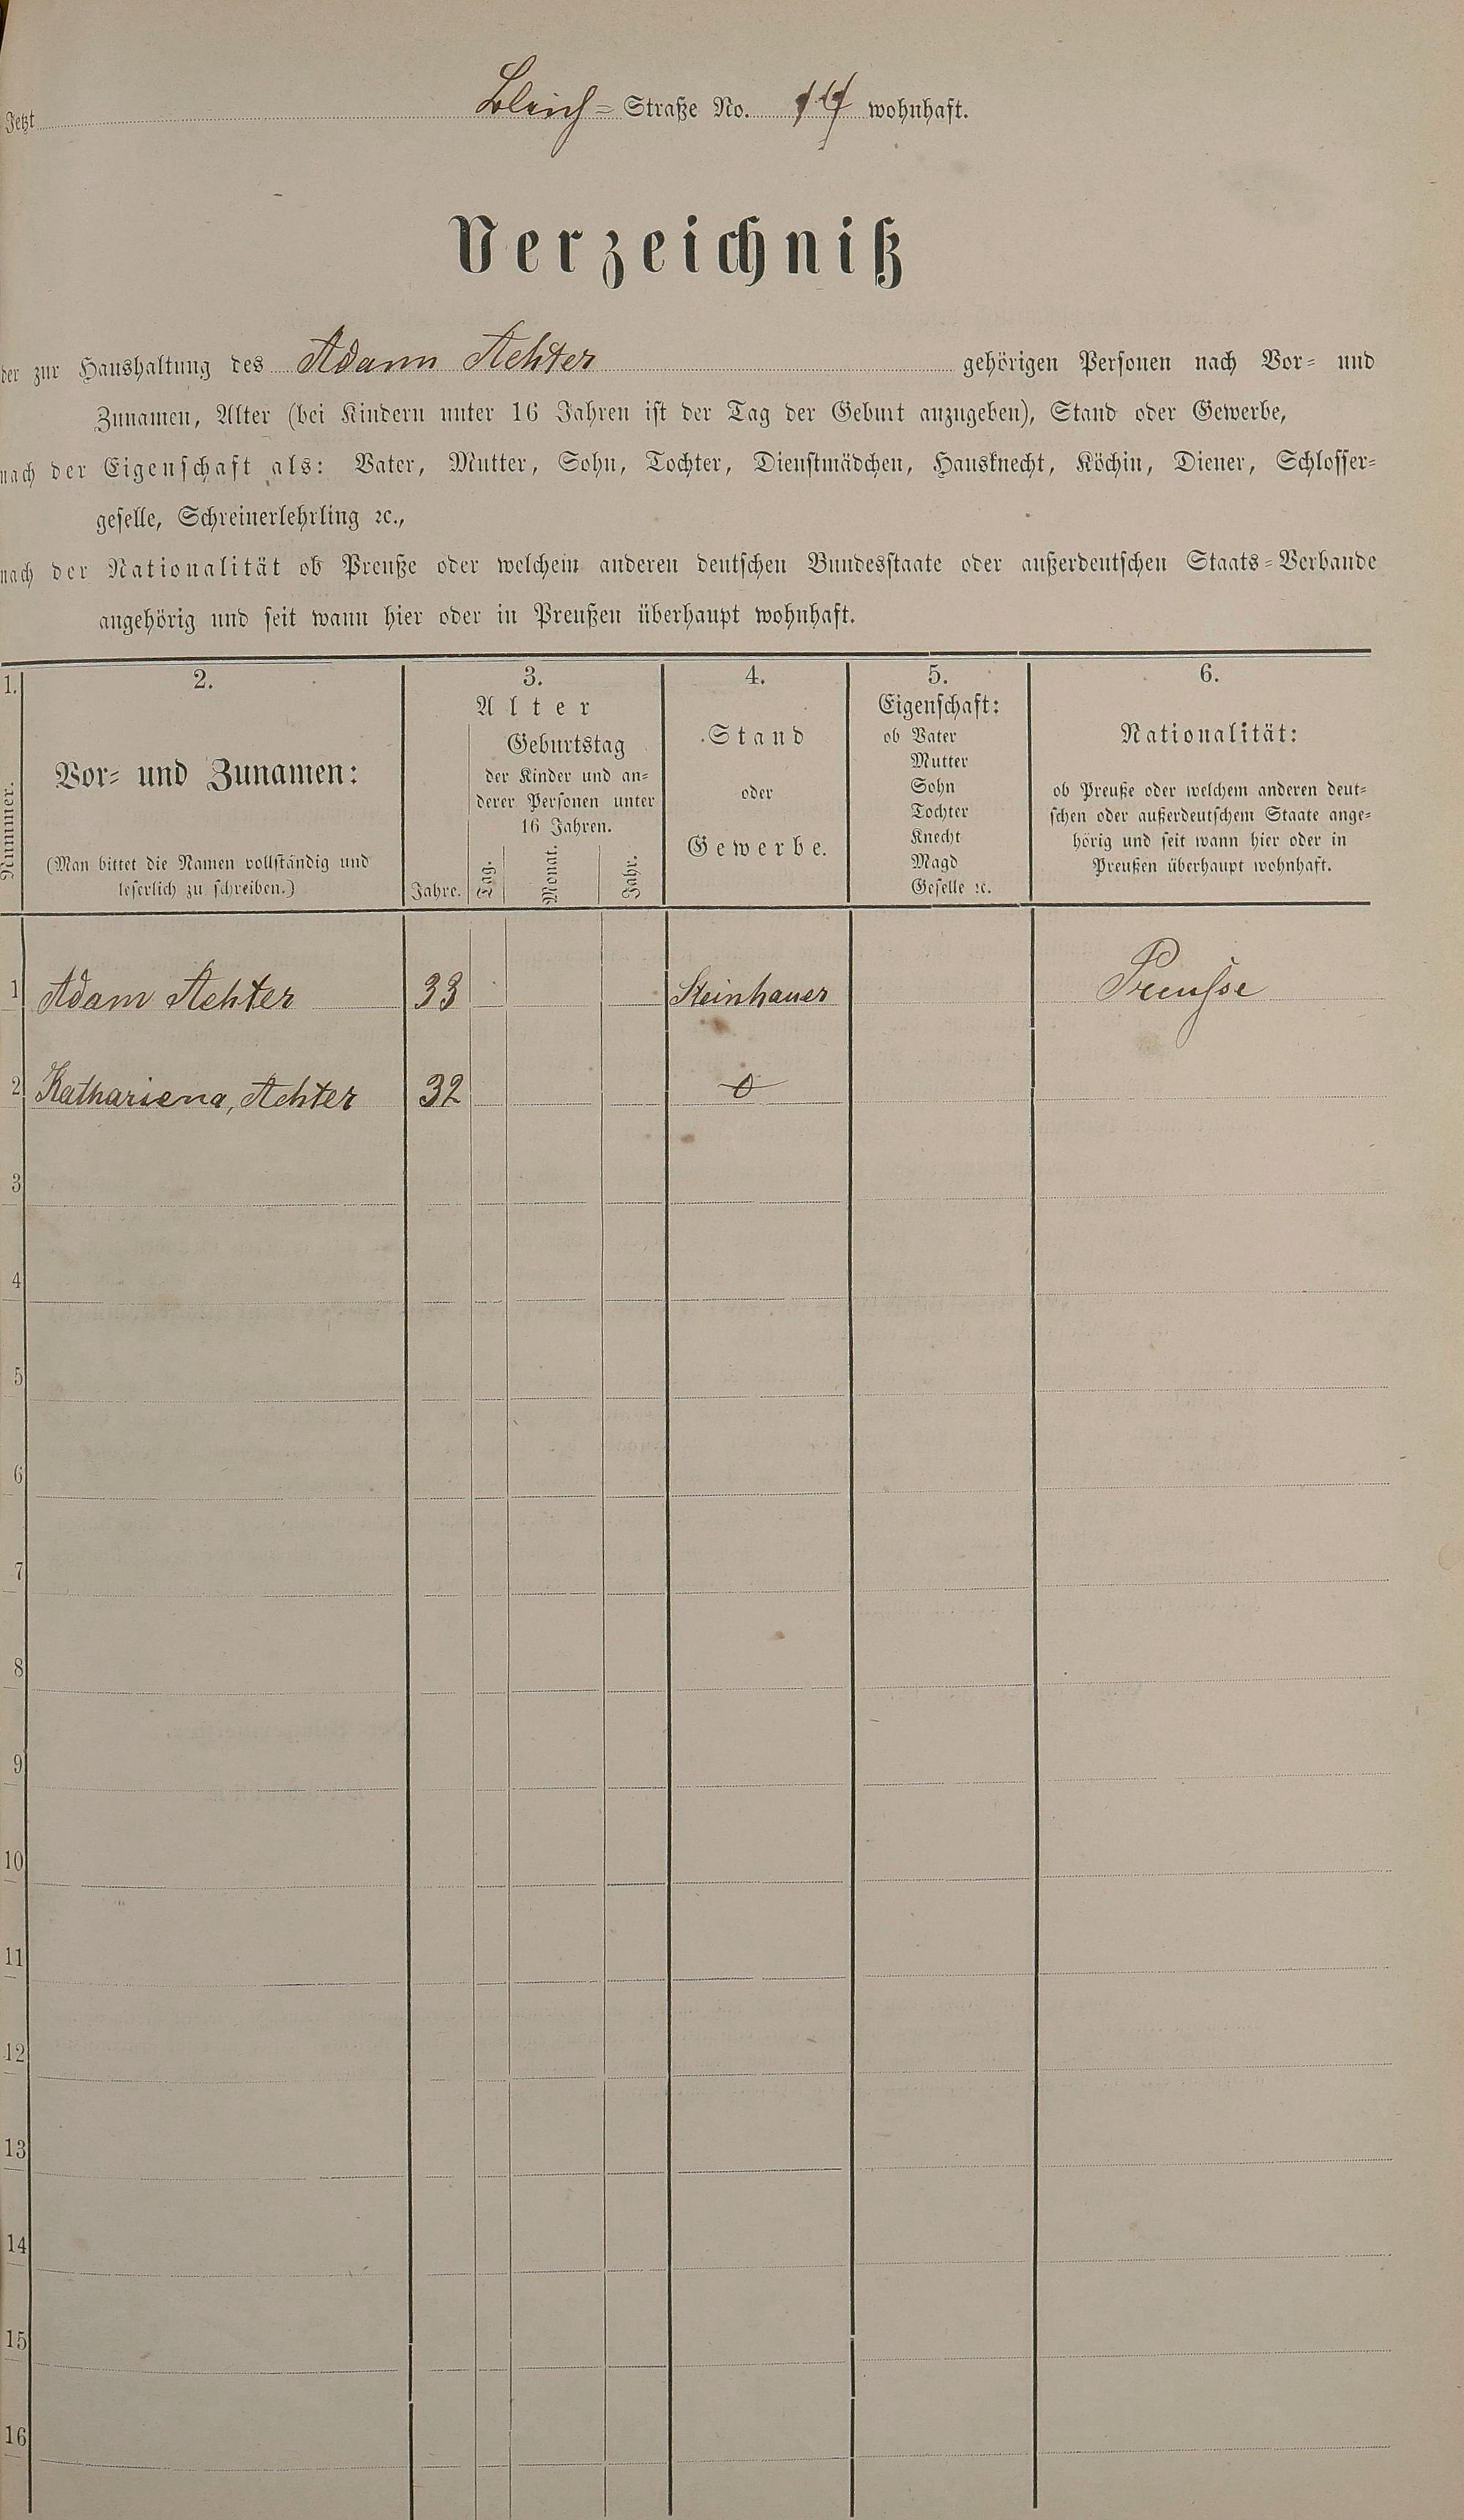 Jetzt Bleich= Straße No. 14 wohnhaft.
Verzeichniß
der zur Haushaltung des Adam Achter gehörigen Personen nach Vor= und
Zunamen, Alter (bei Kindern unter 16 Jahren ist der Tag der Geburt anzugeben), Stand oder Gewerbe,
nach der Eigenschaft als: Vater, Mutter, Sohn, Tochter, Dienstmädchen, Hausknecht, Köchin, Diener, Schlosser=
geselle, Schreinerlehrling ꝛc.,
nach der Nationalität ob Preuße oder welchem anderen deutschen Bundesstaate oder außerdeutschen Staats=Verbande
angehörig und seit wann hier oder in Preußen überhaupt wohnhaft.
1.
Nummer.
2.
Vor= und Zunamen:
(Man bittet die Namen vollständig und
leserlich zu schreiben.)
3.
Alter
Jahre.
Geburtstag
der Kinder und an=
derer Personen unter
16 Jahren.
Tag.
Monat.
Jahr.
4.
Stand
oder
Gewerbe.
5.
Eigenschaft:
ob Vater
Mutter
Sohn
Tochter
Knecht
Magd
Geselle ꝛc.
6.
Nationalität:
ob Preuße oder welchem anderen deut=
schen oder außerdeutschem Staate ange=
hörig und seit wann hier oder in
Preußen überhaupt wohnhaft.
1 Adam Achter 33 Steinhauer Preusse
2 Kathariena, Achter 32
3
4
5
6
7
8
9
10
11
12
13
14
15
16